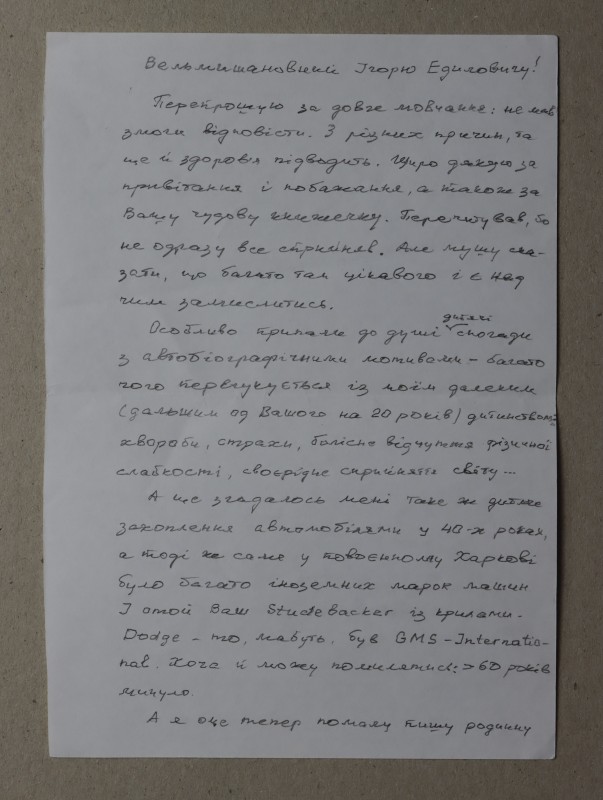 Вельмишановний Ігорю Едиловичу!
Перепрошую за довге мовчання: не мав
змоги відповісти. З різних причин, та
ще й здоров'я підводить. Щиро дякую за
привітання і побажання, а також за
Вашу чудову книжечку. Перечитував, бо
не одразу все сприйняв. Але мушу ска-
зати, що багато там цікавого і є над
чим замислитись.
Особливо припали до душі дитячі спогади
з автобіографічними мотивами – багато
чого перегукується із моїм далеким
(дальшим од Вашого на 20 років) дитинством:
хвороби, страхи, болісне відчуття фізичної
слабкості, своєрідне сприйняття світу...
А ще згадалось мені таке ж дитяче
захоплення автомобілями у 40-х роках,
а тоді ж саме у повоєнному Харкові
було багато іноземних марок машин
І отой Ваш Studebacker із крилами-
Dodge – то, мабуть, був GMS-Internatio-
nal. Хоча й можу помилятись: >60 років
минуло.
А я оце тепер помалу пишу родинну